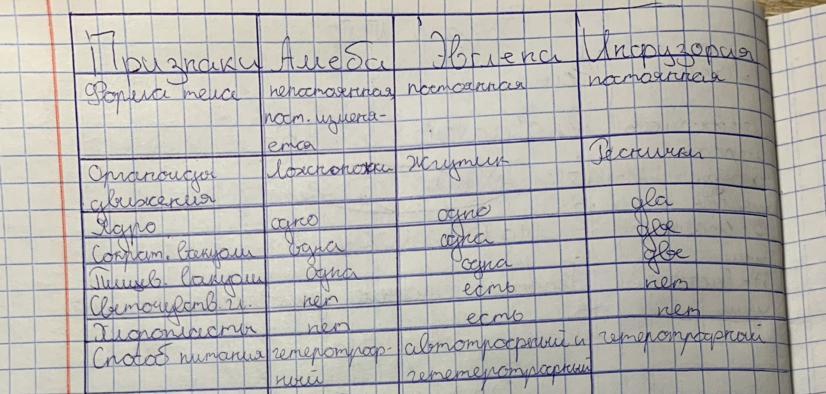 Признаки Амеба Эвглена Инфузория
Форма тела непостоянная постоянная постоянная
пост. изменя-
ется
Органоиды ложноножки жгутик Реснички
движения
Ядро одно одно два
Сократ. вакуоли одна одна две
Пищев. вакуоли одна одна две
Светочувств. г. нет есть нет
Хлоропласты нет есть нет
Способ питания гетеротроф- автотрофный и гетеротрофный
ный гететеротрофный